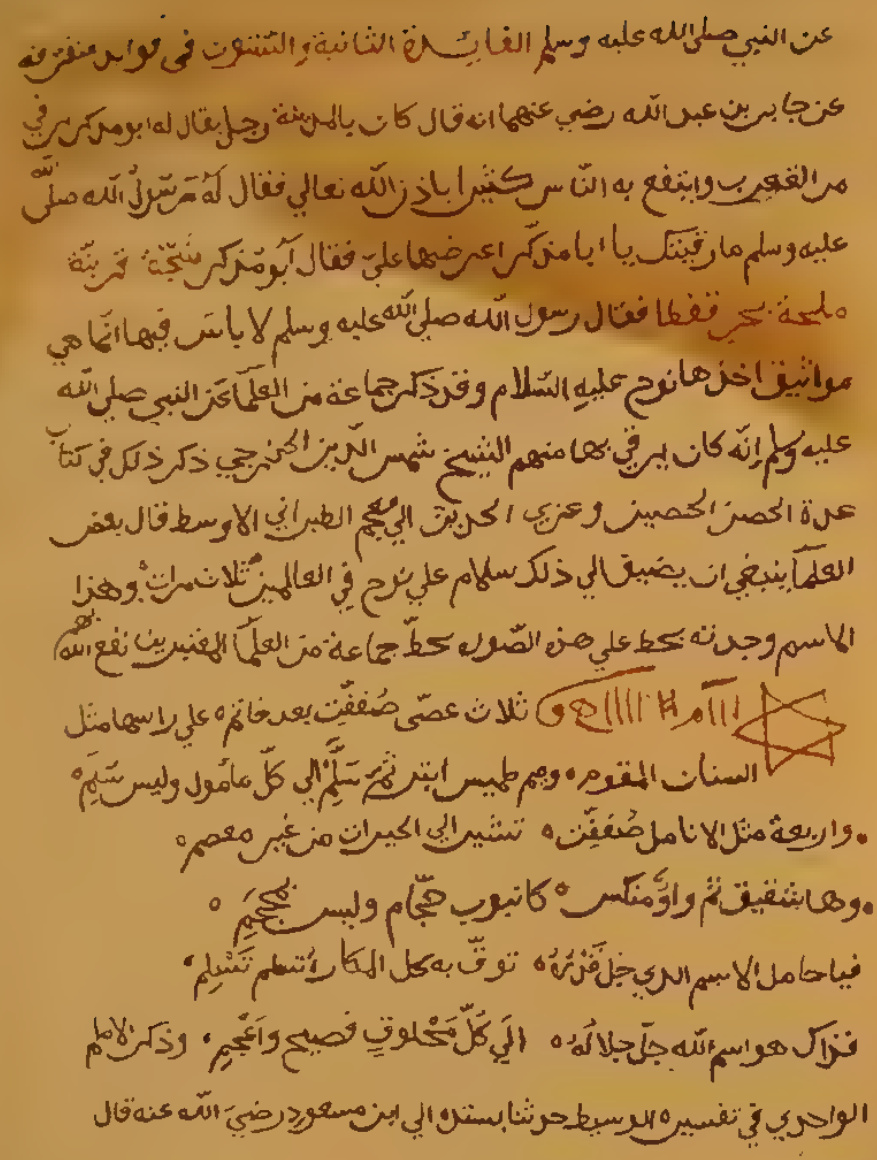 عن النبي صلى الله عليه وسلم الفايدة الثانية والتسعون في فوايد متفرقه
عن جابر بن عبد الله رضي عنهما انه قال كان بالمدينة رجل يقال له ابو مذكر يرقي
من العقرب وينتفع به الناس كثيرا باذن الله تعالي فقال له رسول الله صلى الله
عليه وسلم ما رقيتك يا ابا مذكر اعرضها علي فقال ابو مذكر شجة قرنية
ملحة بحر قفطا فقال رسول الله صلى الله عليه وسلم لا باس فيها انما هي
مواثيق اخذها نوح عليه السلام وقد ذكر جماعة من العلما عن النبي صلى الله
عليه وسلم انه كان يرقي بها منهم الشيخ شمس الدين الجزرجي ذكر ذلك في كتاب
عدة الحصن الحصين وعزي الحديث الي معجم الطبراني الاوسط قال بعض
العلما ينبغي ان يضيق الي ذلك سلام علي نوح في العالمين ثلاث مرات وهذا
الاسم وجدته بخط علي هذه الصوره بخط جماعة من العلما المفيدين نفع الله بهم
ثلاث عصي صففت بعد خاتم علي راسها مثل
السنان المقوم وميم طميس ابتر ثم سلم الي كل مامول وليس سلم
واربعة مثل الانامل صففت تشير الي الخيرات من غير معصم
وها شقيق ثم واو منكس كانبوب حجام وليس بمحجم
فيا حامل الاسم الذي جل قدره توق به كل المكاره تسلم
فذاك هو اسم الله جل جلاله الي كل مخلوق فصيح واعجم وذكر الامام
الواحدي في تفسيره الوسيط حدثنا بسنده الي ابن مسعود رضي الله عنه قال